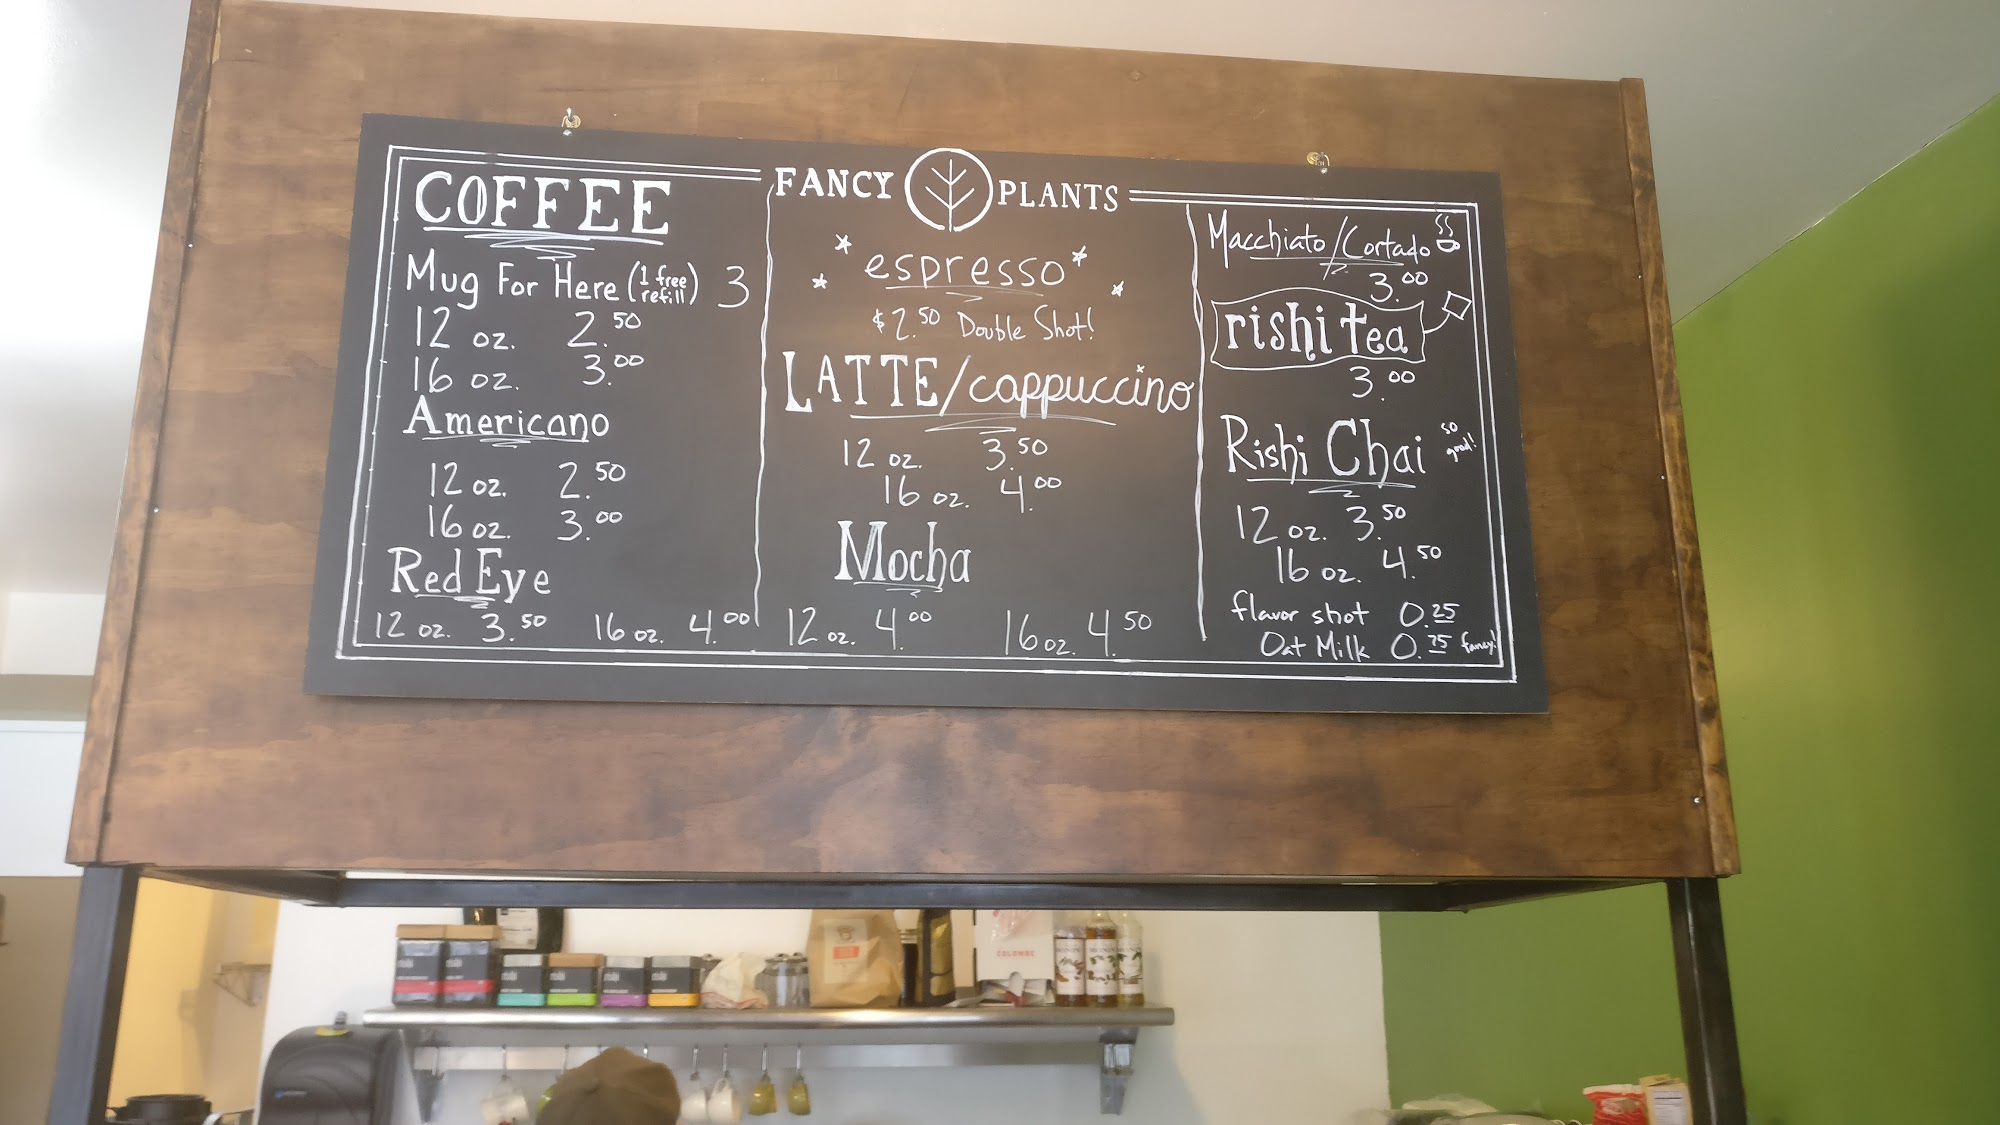 FANCY PLANTS
COFFEE
Mug For Here (1 free refill) 3
12 oz. 2.50
16 oz. 3.00
Americano
12 oz. 2.50
16 oz. 3.00
Red Eye
12 oz. 3.50 16 oz. 4.00
espresso
$2.50 Double Shot!
LATTE/cappuccino
12 oz. 3.50
16 oz. 4.00
Mocha
12 oz. 4.00 16 oz. 4.50
Macchiato/Cortado
3.00
rishi tea
3.00
Rishi Chai so good!
12 oz. 3.50
16 oz. 4.50
flavor shot 0.25
Oat Milk 0.75 fancy!
COLOMBE